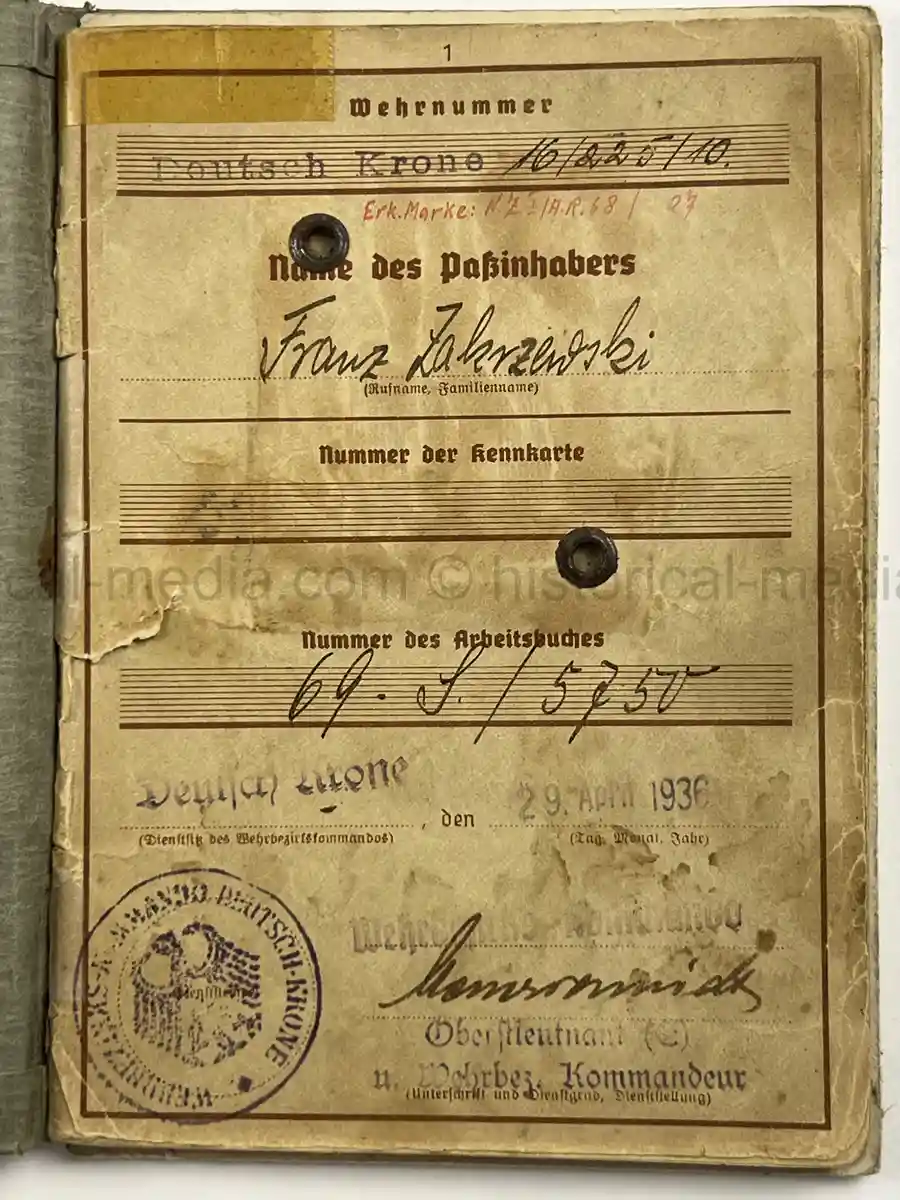 1
Wehrnummer
Deutsch Krone 16/225/10.
Erk.Marke: N.Z.I/A.R.68 / 07
Name des Paßinhabers
Franz Zakrzewski
(Rufname, Familienname)
Nummer der Kennkarte
historical-media.com © historical-media
Nummer des Arbeitsbuches
69. S./5750
Deutsch Krone, den 29. April 1936
(Dienstsitz des Wehrbezirkskommandos) (Tag, Monat, Jahr)
WEHRBEZIRKS-KOMMANDO DEUTSCH-KRONE
Wehrbezirks-Kommando
Oberstleutnant (E)
u. Wehrbez. Kommandeur
(Unterschrift und Dienstgrad, Dienststellung)